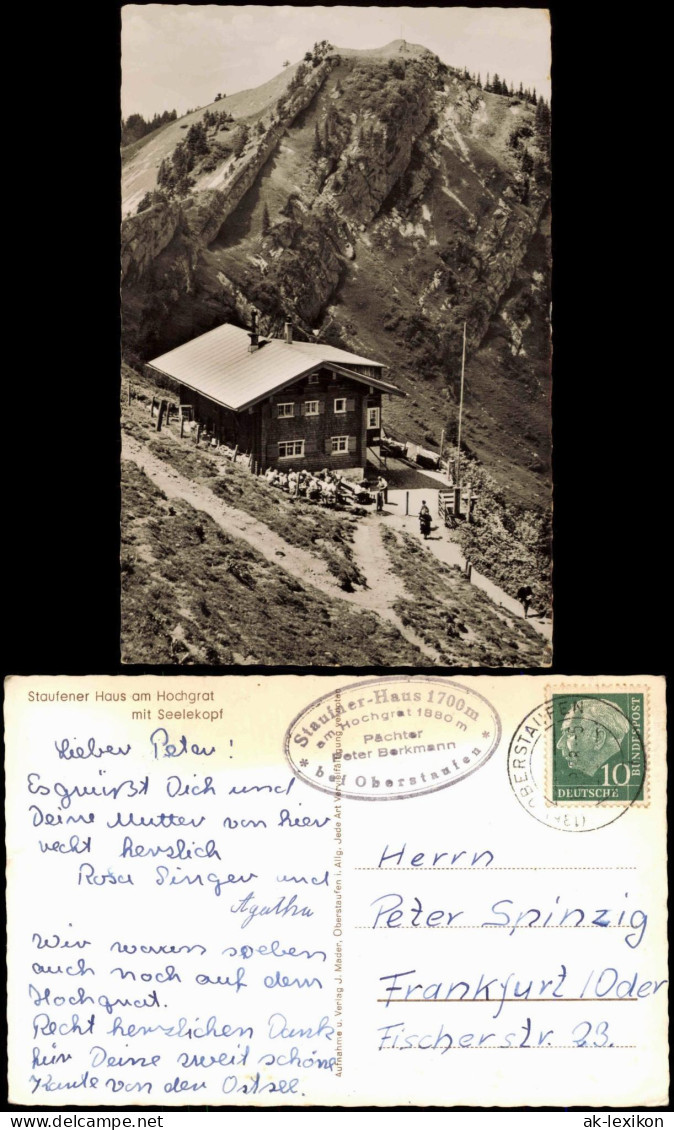 Staufener Haus am Hochgrat
mit Seelekopf
Staufner-Haus 1700m
am Hochgrat 1880 m
Pächter
Peter Berkmann
* bei Oberstaufen *
OBERSTAUFEN
(13b)
10
DEUTSCHE
BUNDESPOST
Lieber Peter!
Es grüßt Dich und
Deine Mutter von hier
recht herzlich
Rosa Singer und
Agatha
Wir waren soeben
auch noch auf dem
Hochgrat.
Recht herzlichen Dank
für Deine zweit schöne
Karte von der Ostsee.
Aufnahme u. Verlag J. Mader, Oberstaufen i. Allg. Jede Art Vervielfältigung verboten
Herrn
Peter Spinzig
Frankfurt/Oder
Fischerstr. 23.
© ak-ansichtskarten.de
ak-lexikon